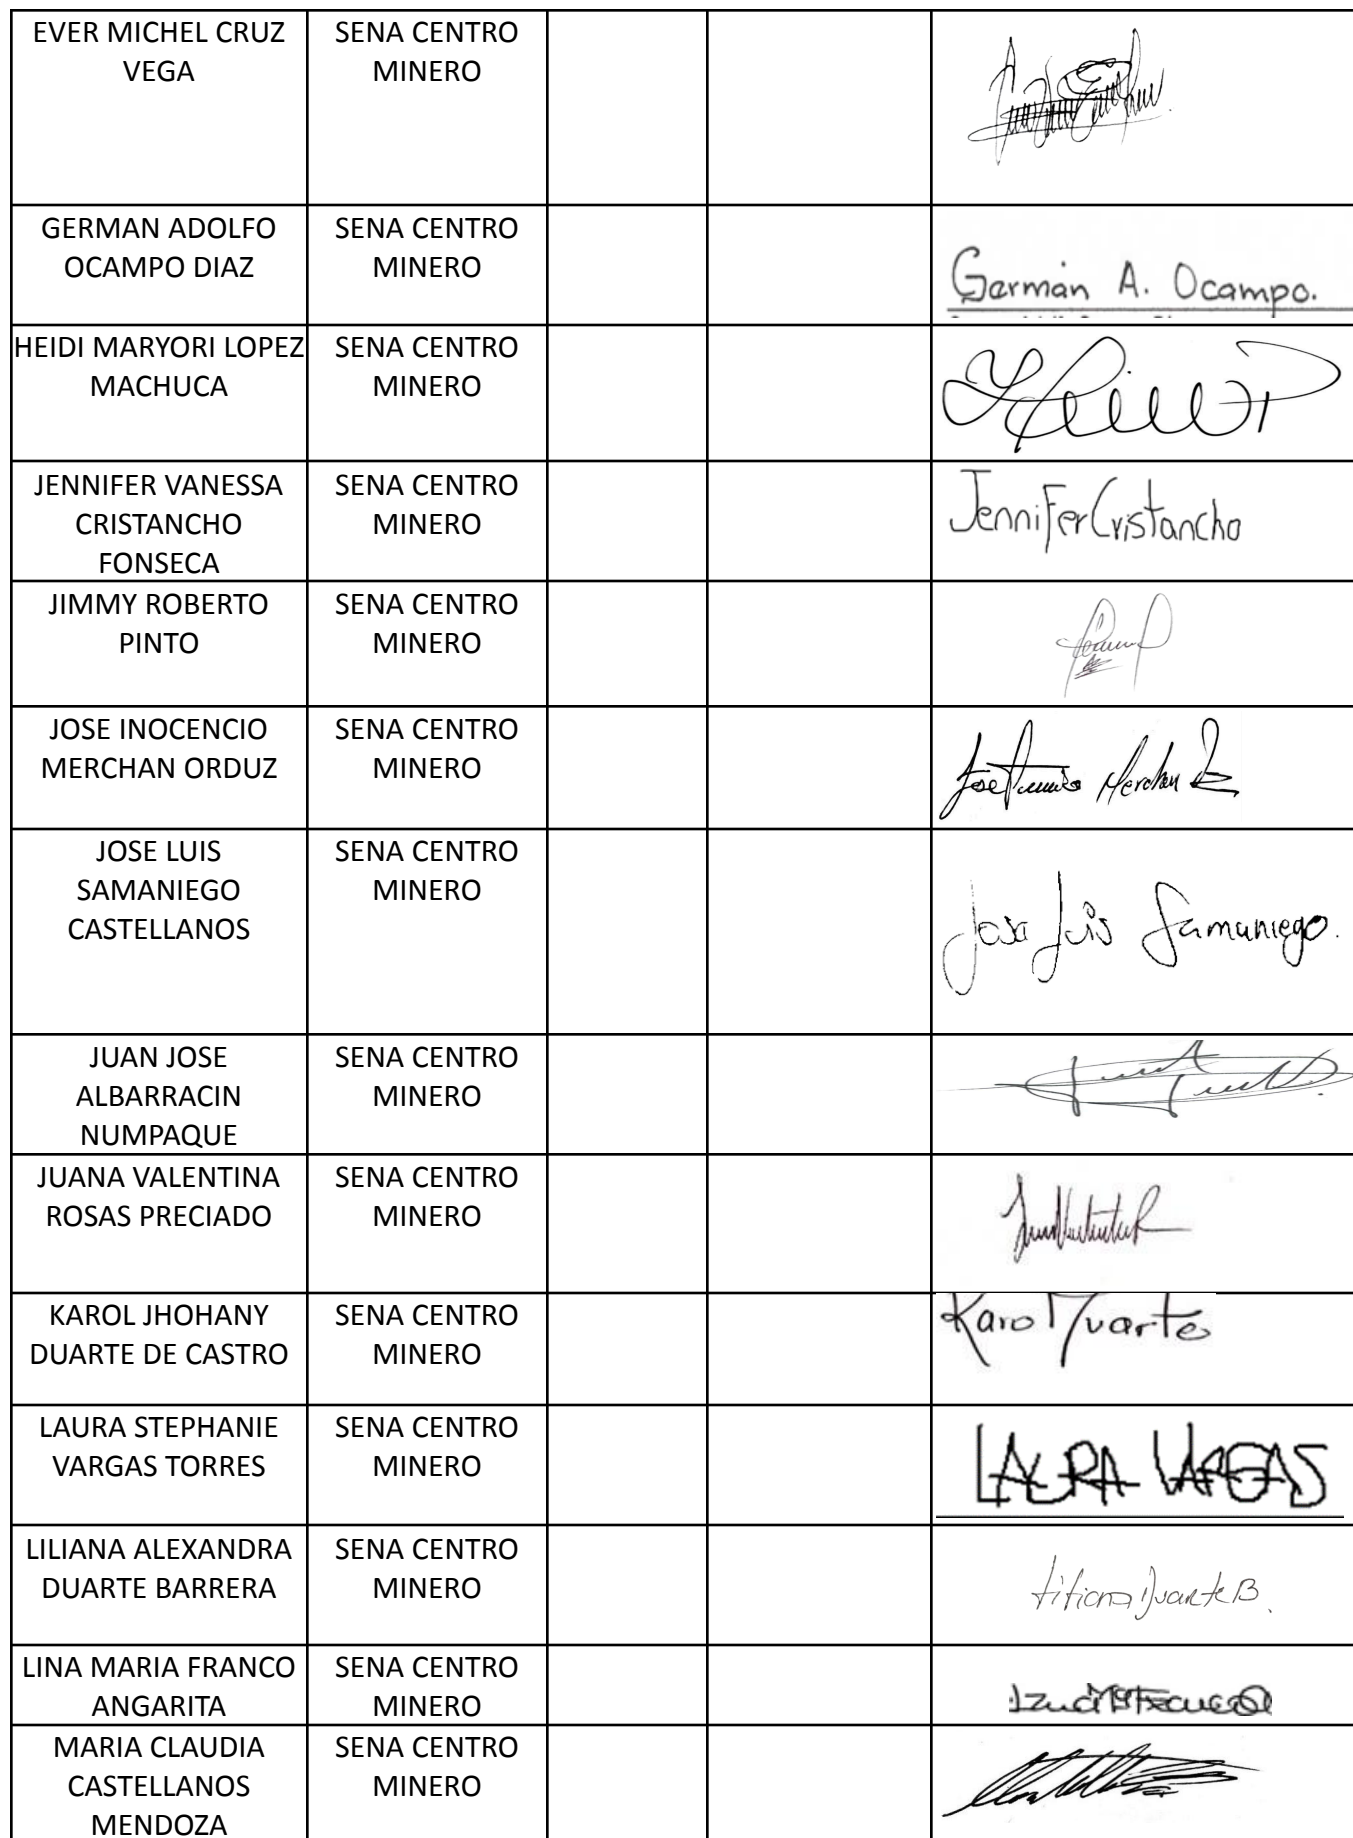 EVER MICHEL CRUZ
VEGA
SENA CENTRO
MINERO
GERMAN ADOLFO
OCAMPO DIAZ
SENA CENTRO
MINERO
Germán A. Ocampo.
HEIDI MARYORI LOPEZ
MACHUCA
SENA CENTRO
MINERO
JENNIFER VANESSA
CRISTANCHO
FONSECA
SENA CENTRO
MINERO
Jennifer Cristancho
JIMMY ROBERTO
PINTO
SENA CENTRO
MINERO
JOSE INOCENCIO
MERCHAN ORDUZ
SENA CENTRO
MINERO
Merchan
JOSE LUIS
SAMANIEGO
CASTELLANOS
SENA CENTRO
MINERO
Jose Luis Samaniego.
JUAN JOSE
ALBARRACIN
NUMPAQUE
SENA CENTRO
MINERO
JUANA VALENTINA
ROSAS PRECIADO
SENA CENTRO
MINERO
KAROL JHOHANY
DUARTE DE CASTRO
SENA CENTRO
MINERO
Karol Duarte
LAURA STEPHANIE
VARGAS TORRES
SENA CENTRO
MINERO
LAURA VARGAS
LILIANA ALEXANDRA
DUARTE BARRERA
SENA CENTRO
MINERO
Liliana Duarte B.
LINA MARIA FRANCO
ANGARITA
SENA CENTRO
MINERO
MARIA CLAUDIA
CASTELLANOS
MENDOZA
SENA CENTRO
MINERO